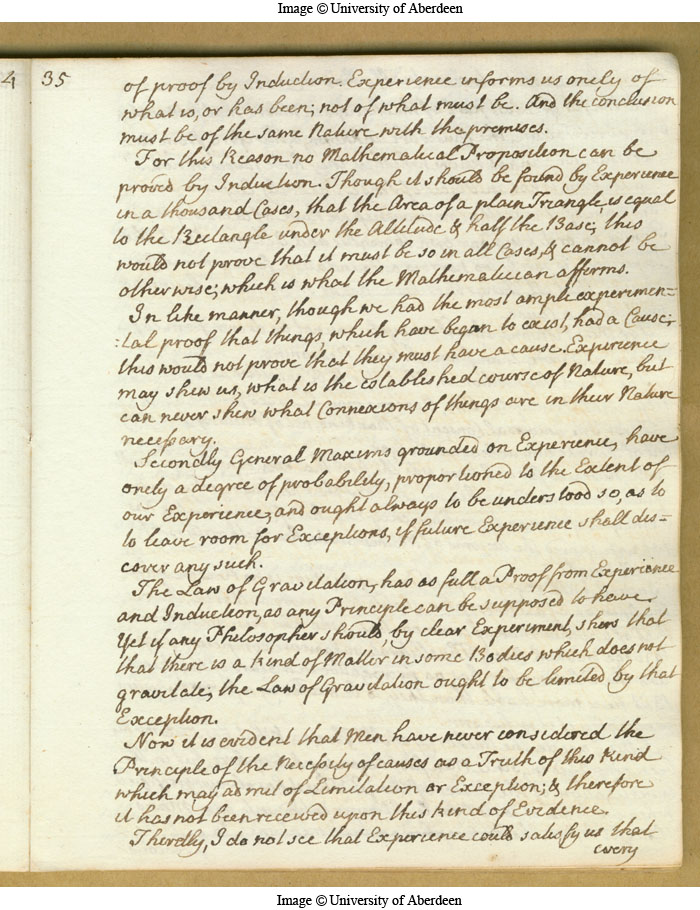 Image © University of Aberdeen
4
35
of proof by Induction. Experience informs us onely of
what is, or has been; not of what must be. And the conclusion
must be of the same Nature with the premises.
For this Reason no Mathematical Proposition can be
proved by Induction. Though it should be found by Experience
in a thousand Cases, that the Area of a plain Triangle, is equal
to the Rectangle under the Altitude & half the Base; this
would not prove that it must be so in all Cases, & cannot be
otherwise; which is what the Mathematician affirms.
In like manner, though we had the most ample experimen=
=tal proof that things, which have began to exist, had a Cause;
this would not prove that they must have a cause. Experience
may shew us, what is the established course of Nature, but
can never shew what Connexions of things are in their Nature
necessary.
Secondly General Maxims grounded on Experience, have
onely a degree of probability, proportioned to the Extent of
our Experience, and ought always to be understood so, as to
to leave room for Exceptions, if future Experience shall dis=
cover any such.
The Law of Gravitation, has as full a Proof from Experience
and Induction, as any Principle can be supposed to have.
Yet if any Philosopher should, by clear Experiment, shew that
that there is a kind of Matter in some Bodies which does not
gravitate; the Law of Gravitation ought to be limited by that
Exception.
Now it is evident that Men have never considered the
Principle of the Necessity of causes as a Truth of this kind
which may admit of Limitation or Exception; & therefore
it has not been received upon this kind of Evidence.
Therdly, I do not see that Experience could satisfy us that
every
Image © University of Aberdeen